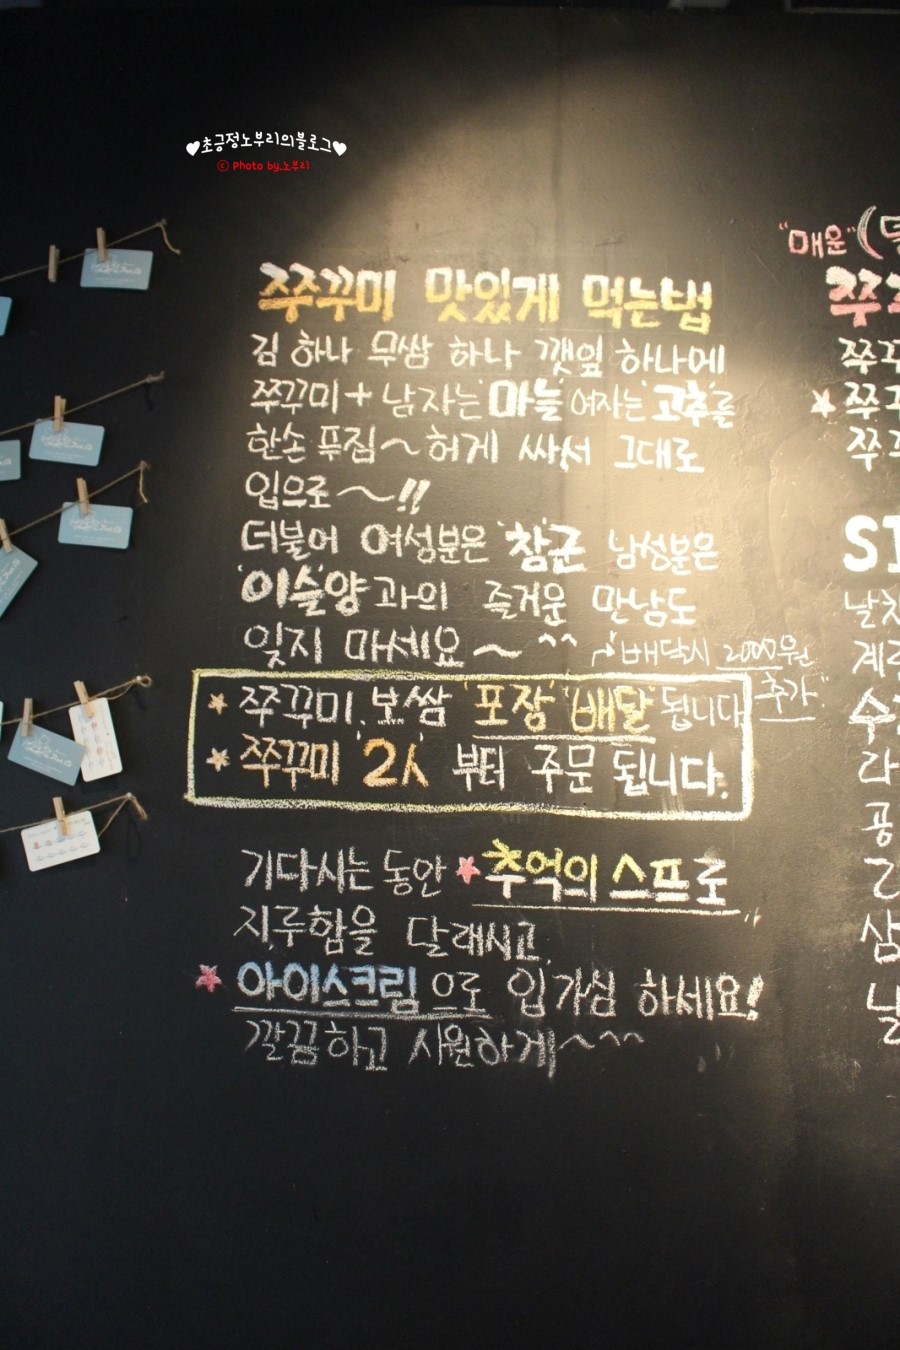 ♥초긍정노부리의블로그♥
ⓒ Photo by.노부리
쭈꾸미 맛있게 먹는법
김 하나 무쌈 하나 깻잎 하나에
쭈꾸미+남자는'마늘'여자는'고추'를
한손 푸집~허게 싸서 그대로
입으로~!!
더불어 여성분은 '참군' 남성분은
'이슬양'과의 즐거운 만남도
잊지 마세요~^^
배달시 2000원
추가
★쭈꾸미, 보쌈 '포장' '배달' 됩니다
★쭈꾸미 '2人' 부터 주문 됩니다.
기다시는 동안 ★추억의 스프로
지루함을 달래시고,
★아이스크림으로 입가심 하세요!
깔끔하고 시원하게~^^
"매운"(
쭈
쭈꾸
★쭈꾸
쭈꾸
SI
날치
계란
라
공
삼
날